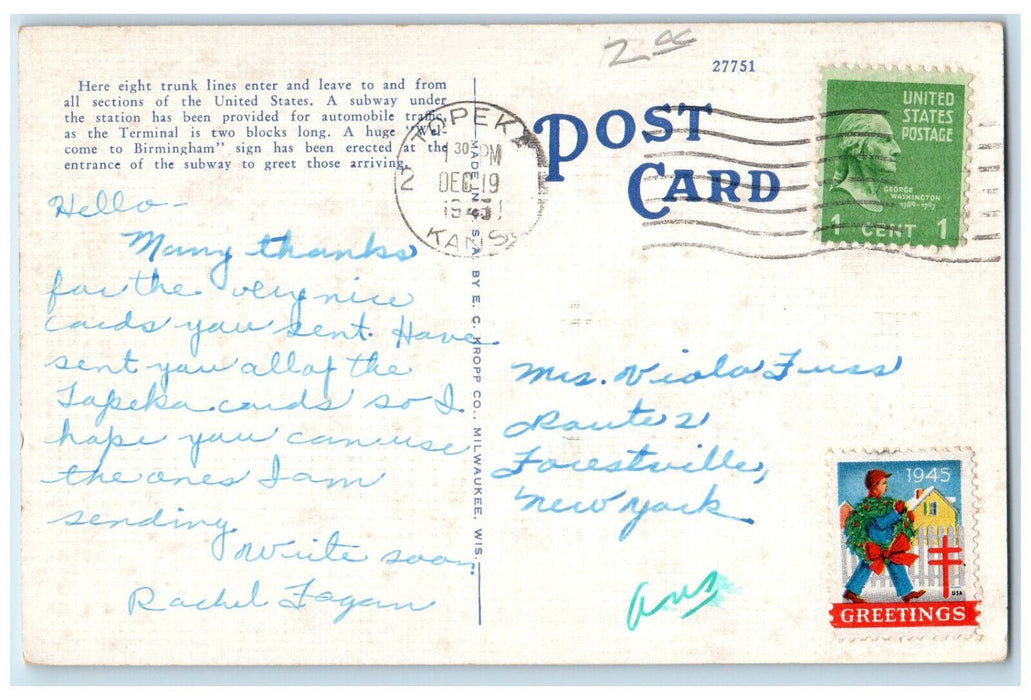 2 00
27751
Here eight trunk lines enter and leave to and from
all sections of the United States. A subway under
the station has been provided for automobile traffic
as the Terminal is two blocks long. A huge "Wel-
come to Birmingham" sign has been erected at the
entrance of the subway to greet those arriving.
TOPEKA
2
1 30 PM
DEC 19
1945
KANS.
POST
CARD
UNITED
STATES
POSTAGE
GEORGE
WASHINGTON
1789-1797
1 CENT 1
MADE IN U. S. A. BY E. C. KROPP CO., MILWAUKEE, WIS.
Hello-
Many thanks
for the very nice
cards you sent. Have
sent you all of the
Topeka cards so I
hope you can use
the ones I am
sending.
Write soon.
Rachel Fagan
Mrs. Viola Fuss
Route 2
Forestville,
New York
Ans
1945
USA
GREETINGS